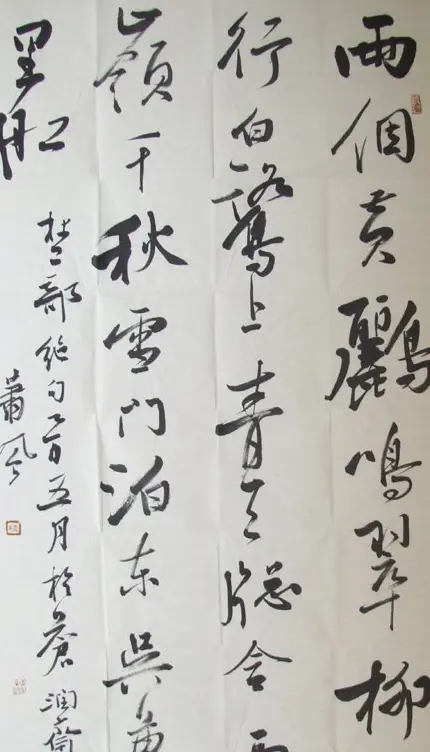 兩個黃鸝鳴翠柳
行白鷺上青天牕含西
嶺千秋雪門泊東吳萬
里船
杜工部絶句乙酉五月於蒼润
蕭風